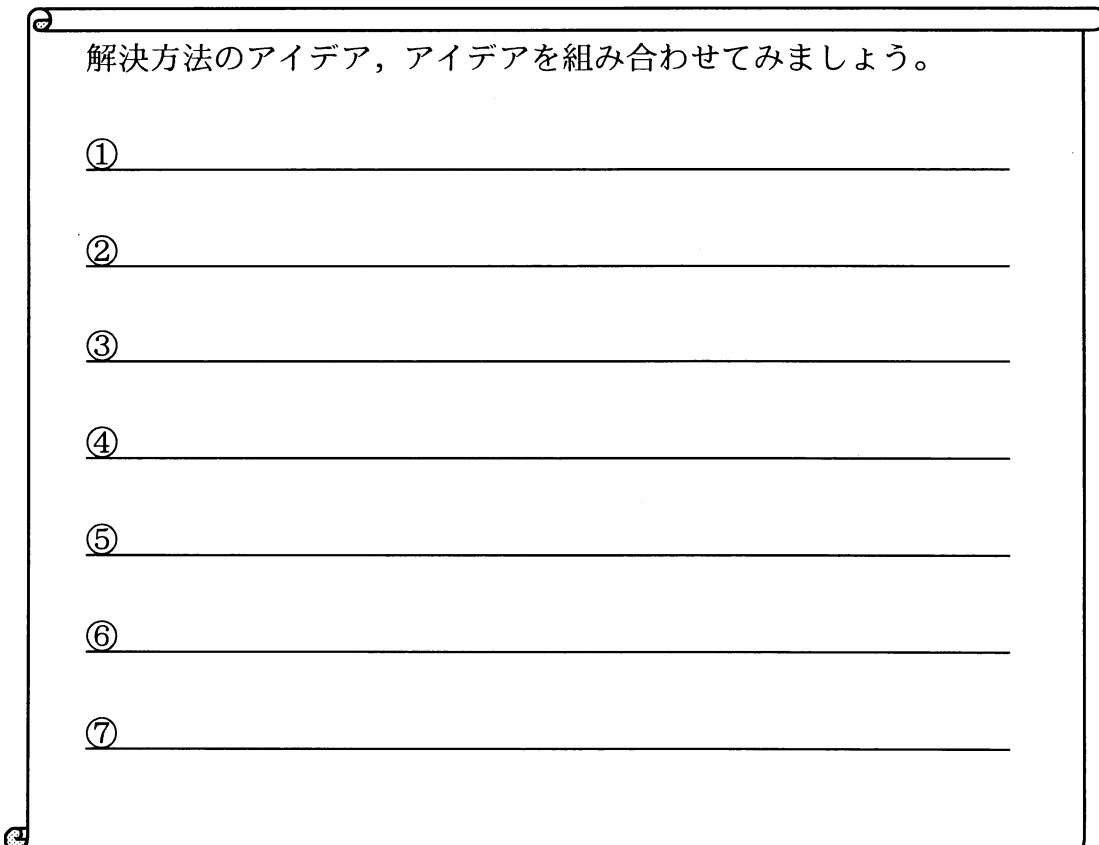 解決方法のアイデア，アイデアを組み合わせてみましょう。
①
②
③
④
⑤
⑥
⑦